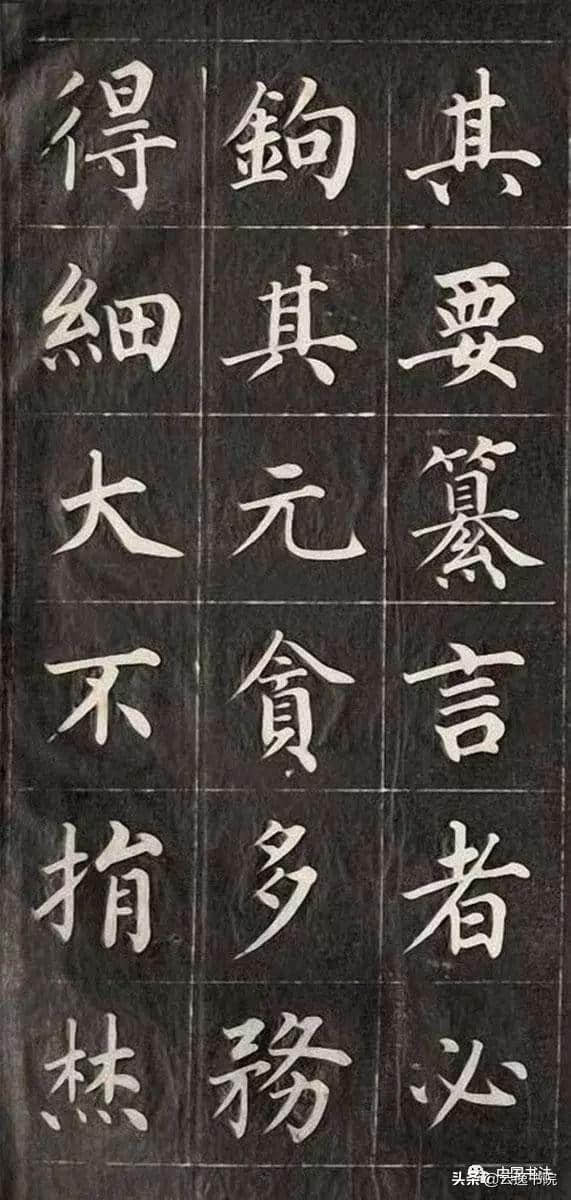 其要纂言者必
鉤其元貪多務
得細大不捐焚
中国书法
头条@云 书院